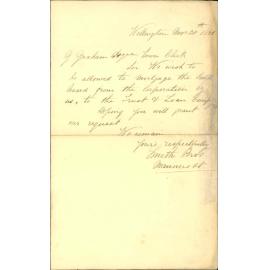 Wellington Nov 20th
J Graham Esq Town Clerk
Sir We wish to
be allowed to mortgage the land
leased from the Corporation by
us, to the Trust & Loan Compy
Hoping you will grant
our request
We remain
Yours respectfully
Smith Bros
Manners St